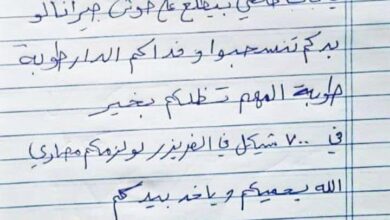 بيطلع على حوش جيرانا لو
بدكم تنسحبوا وفداكم الدار طوبة
طوبة المهم تظلكم بخير
في ٧٠٠ شيكل في الفريزر لو لزمكم مصاري
الله يحميكم وياخد بيدكم